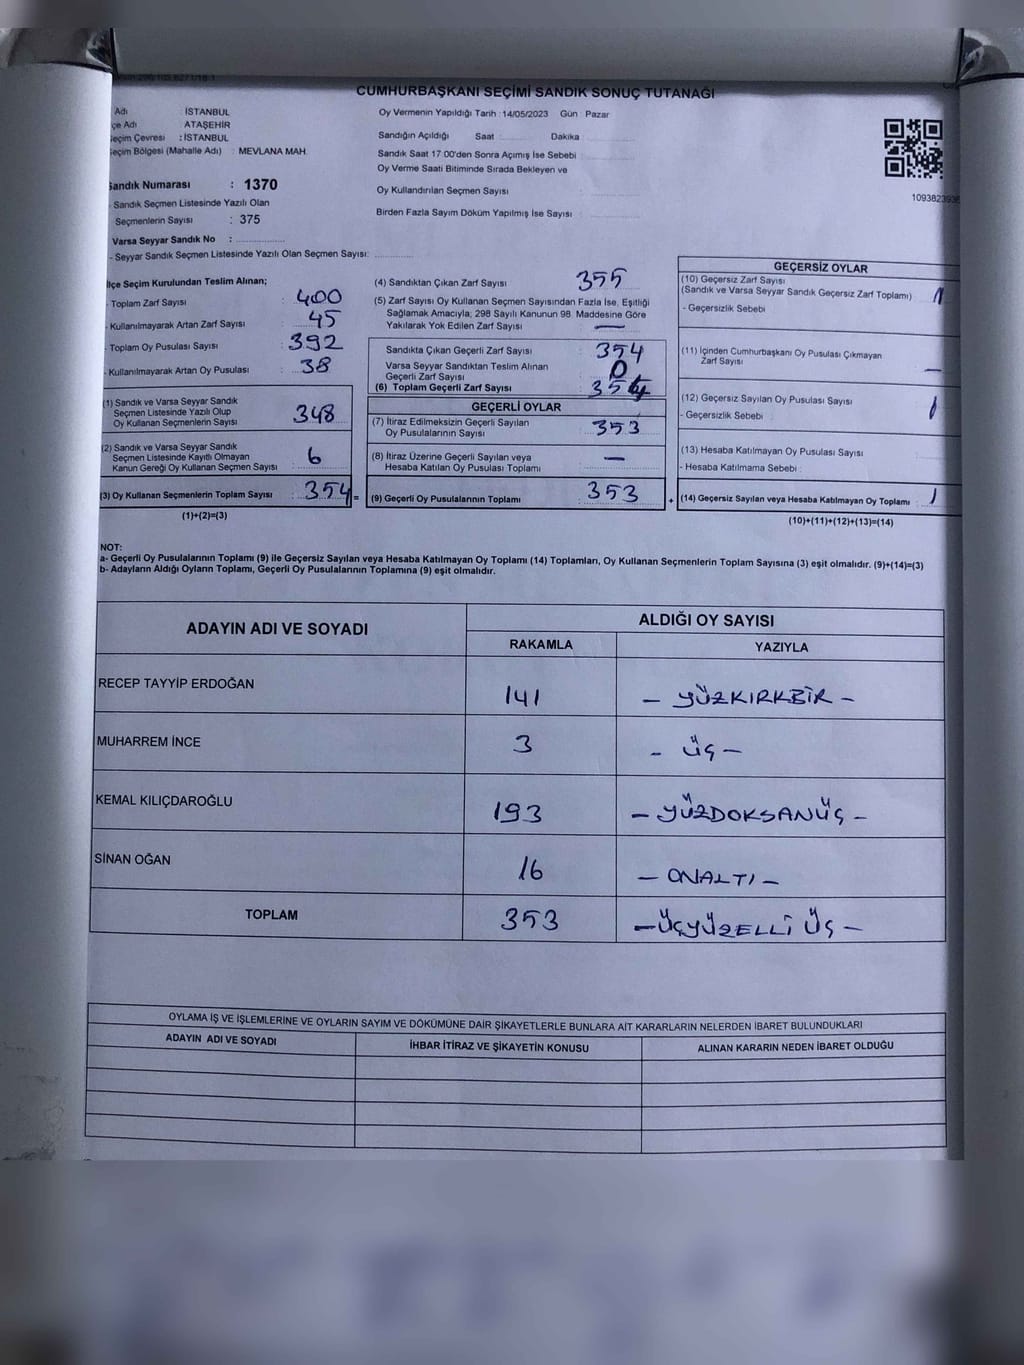 CUMHURBAŞKANI SEÇİMİ SANDIK SONUÇ TUTANAĞI
Adı İSTANBUL
çe Adı ATAŞEHİR
eçim Çevresi : İSTANBUL
eçim Bölgesi (Mahalle Adı) : MEVLANA MAH.
Sandık Numarası : 1370
- Sandık Seçmen Listesinde Yazılı Olan
Seçmenlerin Sayısı : 375
Varsa Seyyar Sandık No :
- Seyyar Sandık Seçmen Listesinde Yazılı Olan Seçmen Sayısı:
Oy Vermenin Yapıldığı Tarih : 14/05/2023 Gün : Pazar
Sandığın Açıldığı Saat Dakika
Sandık Saat 17:00'den Sonra Açımış İse Sebebi
Oy Verme Saati Bitiminde Sırada Bekleyen ve
Oy Kullandırılan Seçmen Sayısı :
Birden Fazla Sayım Döküm Yapılmış İse Sayısı :
İlçe Seçim Kurulundan Teslim Alınan;
- Toplam Zarf Sayısı : 400
- Kullanılmayarak Artan Zarf Sayısı : 45
- Toplam Oy Pusulası Sayısı : 392
- Kullanılmayarak Artan Oy Pusulası : 38
(1) Sandık ve Varsa Seyyar Sandık
Seçmen Listesinde Yazılı Olup
Oy Kullanan Seçmenlerin Sayısı : 348
(2) Sandık ve Varsa Seyyar Sandık
Seçmen Listesinde Kayıtlı Olmayan
Kanun Gereği Oy Kullanan Seçmen Sayısı : 6
(3) Oy Kullanan Seçmenlerin Toplam Sayısı : 354 =
(1)+(2)=(3)
(4) Sandıktan Çıkan Zarf Sayısı : 355
(5) Zarf Sayısı Oy Kullanan Seçmen Sayısından Fazla İse, Eşitliği
Sağlamak Amacıyla; 298 Sayılı Kanunun 98. Maddesine Göre
Yakılarak Yok Edilen Zarf Sayısı : —
Sandıkta Çıkan Geçerli Zarf Sayısı : 354
Varsa Seyyar Sandıktan Teslim Alınan
Geçerli Zarf Sayısı : 0
(6) Toplam Geçerli Zarf Sayısı : 354
GEÇERLİ OYLAR
(7) İtiraz Edilmeksizin Geçerli Sayılan
Oy Pusulalarının Sayısı : 353
(8) İtiraz Üzerine Geçerli Sayılan veya
Hesaba Katılan Oy Pusulası Toplamı : —
(9) Geçerli Oy Pusulalarının Toplamı : 353 +
GEÇERSİZ OYLAR
(10) Geçersiz Zarf Sayısı
(Sandık ve Varsa Seyyar Sandık Geçersiz Zarf Toplamı) :
- Geçersizlik Sebebi
(11) İçinden Cumhurbaşkanı Oy Pusulası Çıkmayan
Zarf Sayısı : —
(12) Geçersiz Sayılan Oy Pusulası Sayısı : 1
- Geçersizlik Sebebi
(13) Hesaba Katılmayan Oy Pusulası Sayısı
- Hesaba Katılmama Sebebi
(14) Geçersiz Sayılan veya Hesaba Katılmayan Oy Toplamı : 1
(10)+(11)+(12)+(13)=(14)
NOT:
a- Geçerli Oy Pusulalarının Toplamı (9) ile Geçersiz Sayılan veya Hesaba Katılmayan Oy Toplamı (14) Toplamları, Oy Kullanan Seçmenlerin Toplam Sayısına (3) eşit olmalıdır. (9)+(14)=(3)
b- Adayların Aldığı Oyların Toplamı, Geçerli Oy Pusulalarının Toplamına (9) eşit olmalıdır.
ADAYIN ADI VE SOYADI ALDIĞI OY SAYISI
RAKAMLA YAZIYLA
RECEP TAYYİP ERDOĞAN 141 - YÜZKIRKBİR -
MUHARREM İNCE 3 - ÜÇ -
KEMAL KILIÇDAROĞLU 193 - YÜZDOKSANÜÇ -
SİNAN OĞAN 16 - ONALTI -
TOPLAM 353 - ÜÇYÜZELLİ ÜÇ -
OYLAMA İŞ VE İŞLEMLERİNE VE OYLARIN SAYIM VE DÖKÜMÜNE DAİR ŞİKAYETLERLE BUNLARA AİT KARARLARIN NELERDEN İBARET BULUNDUKLARI
ADAYIN ADI VE SOYADI İHBAR İTİRAZ VE ŞİKAYETİN KONUSU ALINAN KARARIN NEDEN İBARET OLDUĞU